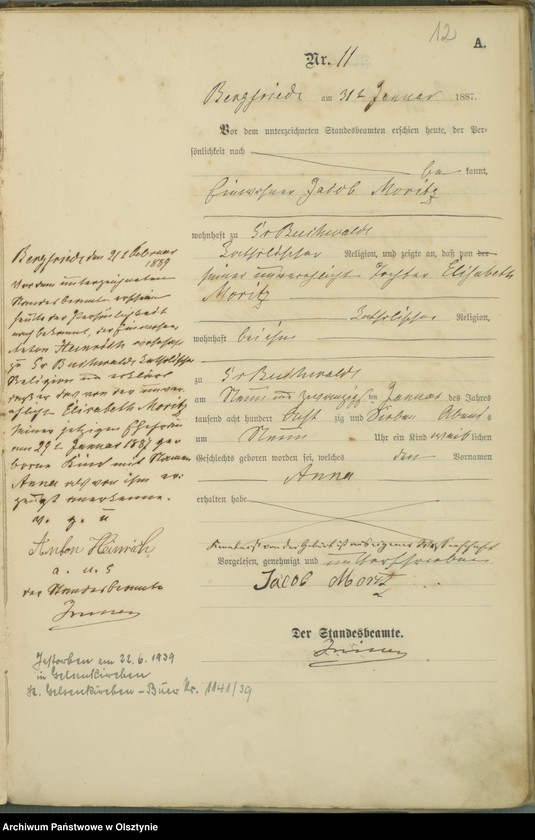 12
A.
Nr. 11
Bergfriede am 31t Januar 1887.
Vor dem unterzeichneten Standesbeamten erschien heute, der Per-
sönlichkeit nach
be kannt,
Einwohner Jacob Moritz
wohnhaft zu Gr Buchwalde
katholischer Religion, und zeigte an, daß von der
seiner unverehelichte Tochter Elisabeth
Moritz
katholischer Religion,
wohnhaft bei ihm
zu Gr Buchwalde
am Neun und zwanzigsten Januar des Jahres
tausend acht hundert Acht zig und Sieben Abends
um Neun Uhr ein Kind weiblichen
Geschlechts geboren worden sei, welches den Vornamen
Anna
erhalten habe
Kenntniß von der Geburt ist aus eigener Wissenschaft
Vorgelesen, genehmigt und unterschrieben
Jacob Moritz
Der Standesbeamte.
Bergfriede, den 2t Februar
1889
Vor dem unterzeichneten
Standesbeamte erschien
heute der Persönlichkeit
nach bekannt, der Einwohner
Anton Heinrich wohnhaft
zu Gr Buchwalde katholischer
Religion und erklärt
daß er das von der unver-
ehelicht Elisabeth Moritz
seiner jetzigen Ehefrau
am 29t Januar 1887 ge-
borene Kind mit Namen
Anna als von ihm er-
zeugt anerkenne.
v. g. u
Anton Heinrich
a. u. s
der Standesbeamte
Gestorben am 22.6.1939
in Gelsenkirchen
St. Gelsenkirchen-Buer Nr. 1141/39
Archiwum Państwowe w Olsztynie